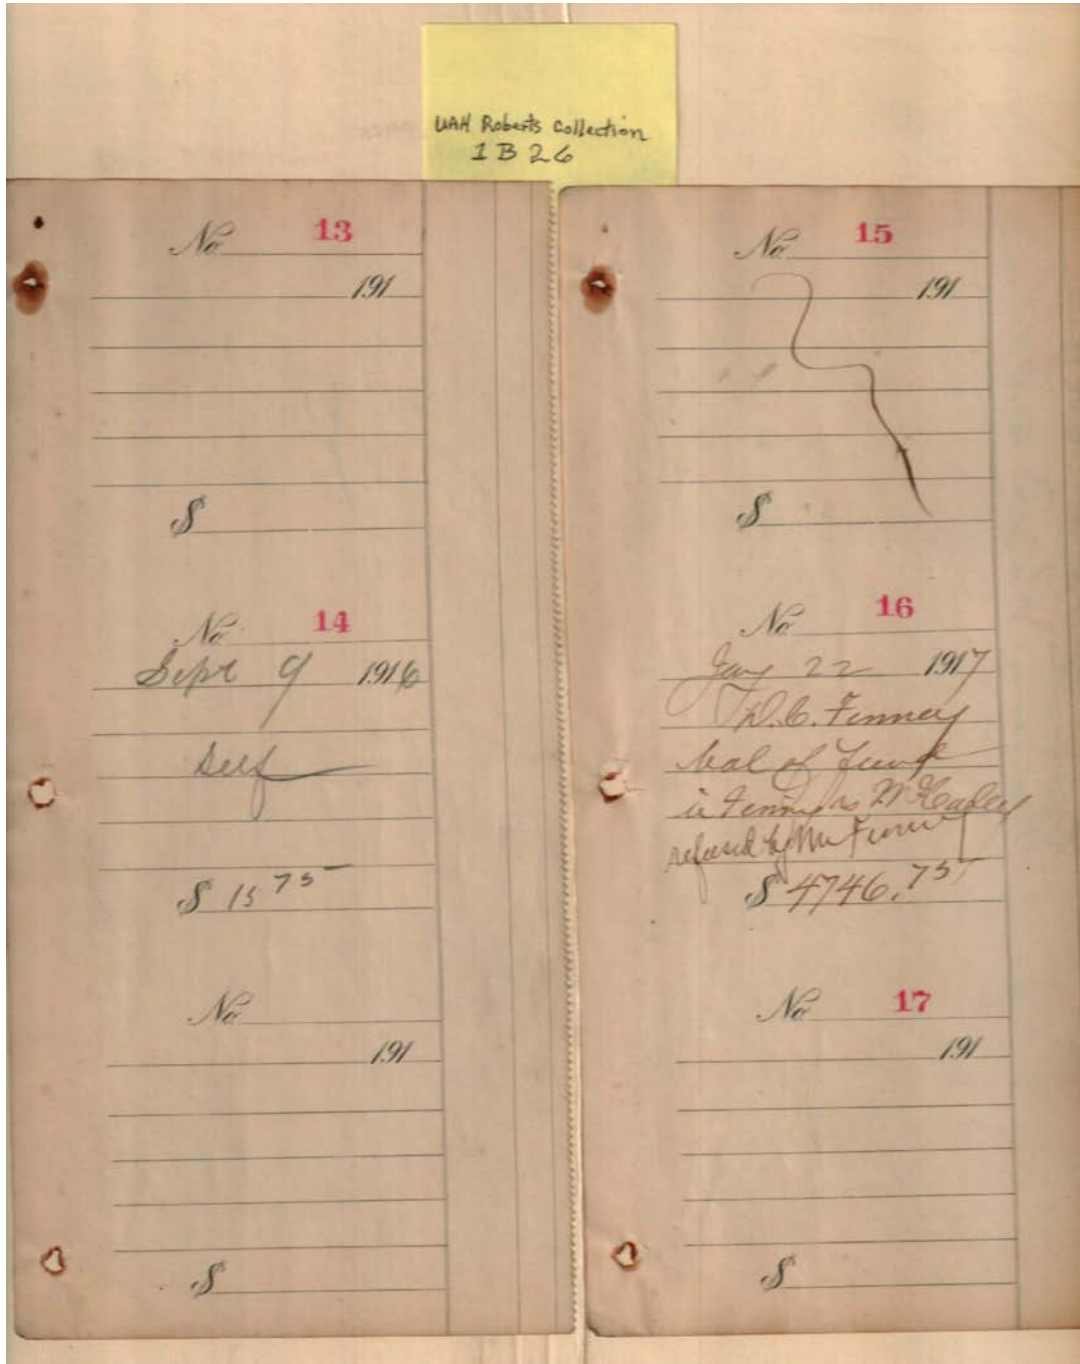 UAH Roberts Collection
1 B 26
No 13
191
$
No. 14
Sept 9 1916
Self
$ 15 75
No
191
$
No 15
191
$
No 16
Jany 22 1917
D. C. Finney
bal of fund
in Finney vs
refused by Mr Finney
$ 4746.75
No 17
191
$